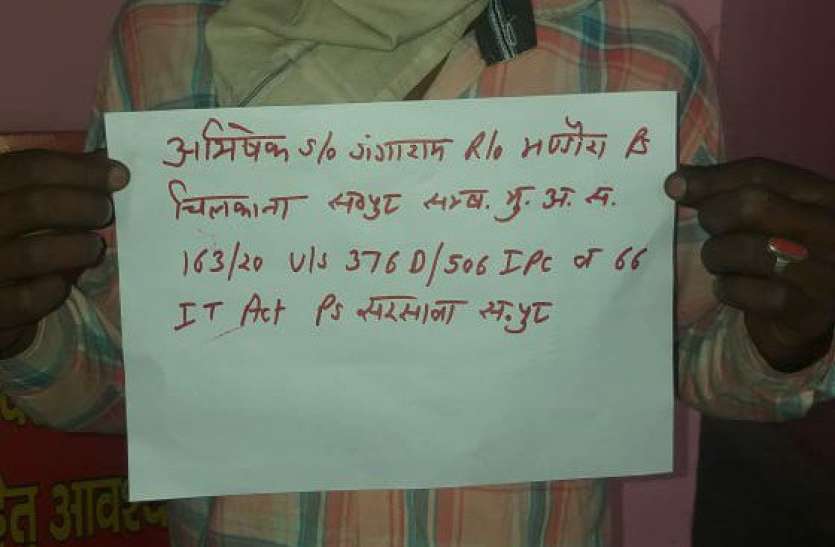 अभिषेक S/o गंगाराम R/o मण्डौरा PS
चिलकाना स०पुर सम्ब. मु. अ. स.
163/20 U/S 376 D/506 IPC व 66
IT Act PS सरसावा स.पुर
हेतु आवश्य